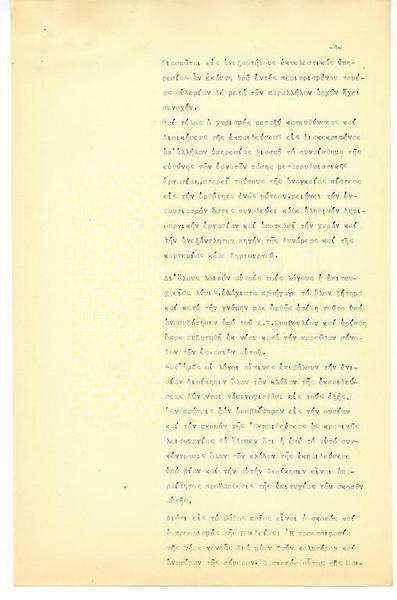 -4-
διασπᾶται εἰς ἀνεξαρτήτους ἐκτελεστικάς ὑπη-
ρεσίας ὧν ἑκάστη δρᾷ ἐντός περιωρισμένου τομέως
οὐδεμίαν δέ μετά τῶν παραλλήλων ἀρχῶν ἔχει
συνοχήν.
τέλος ὁ χωρισμός μεταξύ κατευθύνσεως καί
διοικήσεως τῆς ἐκπαιδεύσεως εἰς διακεκριμένας
ἀπ' ἀλλήλων ὑπηρεσίας διασπᾷ τό συναίσθημα τῆς
εὐθύνης τῶν ἐργατῶν πάσης μεταρρυθμιστικῆς
ἐργασίας, στερεῖ τούτους τῆς ἀναγκαίας πίστεως
εἰς τήν ὀρθότητα ἑνός μέτρου, μειώνει τόν ἐν-
θουσιασμόν ὅστις συνοδεύει κάθε ἀληθινήν δημι-
ουργικήν ἐργασίαν καί ἀποτελεῖ τήν χαράν καί
τήν ἀνεξάντλητον πηγήν τῆς δυνάμεως καί τῆς
καρτερίας κάθε δημιουργοῦ.
Δι' ὅλους λοιπόν αὐτούς τούς λόγους ἡ ἐπιτευ-
χθεῖσα λύσις, ἐλάχιστα προήγαγε τό ὅλον ζήτημα
καί κατά τήν γνώμην μας ὀρθῶς ἐτέθη τοῦτο ὑπό
ἀνασυζήτησιν ὑπό τοῦ Α.Ε.Συμβουλίου καί ὡρίσθη
ὅπως συζητηθῇ ἐκ νέου κατά τήν παροῦσαν σύνο-
δον τῶν ἐργασιῶν αὐτοῦ.
οἱ λόγοι οἵτινες ἐπιβάλουν τήν ἑνι-
αίαν διοίκησιν ὅλων τῶν κλάδων τῆς ἐκπαιδεύ-
σεως δύνανται νά συνοψισθῶσι εἰς τούς ἑξῆς.
Ἐν πρώτοις ἐάν ἀποβλέψωμεν εἰς τήν οὐσίαν
καί τόν σκοπόν τῆς Ἐκπαιδεύσεως ὡς κρατικῆς
λειτουργίας θά ἴδωμεν ὅτι ἡ ἐπί τό αὐτό συγ-
κέντρωσις ὅλων τῶν κλάδων τῆς ἐκπαιδεύσεως
ὑπό μίαν καί τήν αὐτήν διοίκησιν εἶναι ἀπα-
ραίτητος προϋπόθεσις τῆς ἐπιτυχίας τῶν σκοπῶν
αὐτῆς.
Διότι εἰς τό βάθος ποῖος εἶναι ὁ σκοπός καί
ὁ προορισμός τῆς Παιδείας; Ἡ προετοιμασία
τῆς νέας γενεᾶς διά μίαν ζωήν καλυτέραν καί
ἀνωτέραν τῆς σήμερον. Ὁ σκοπός οὗτος τῆς Παι-